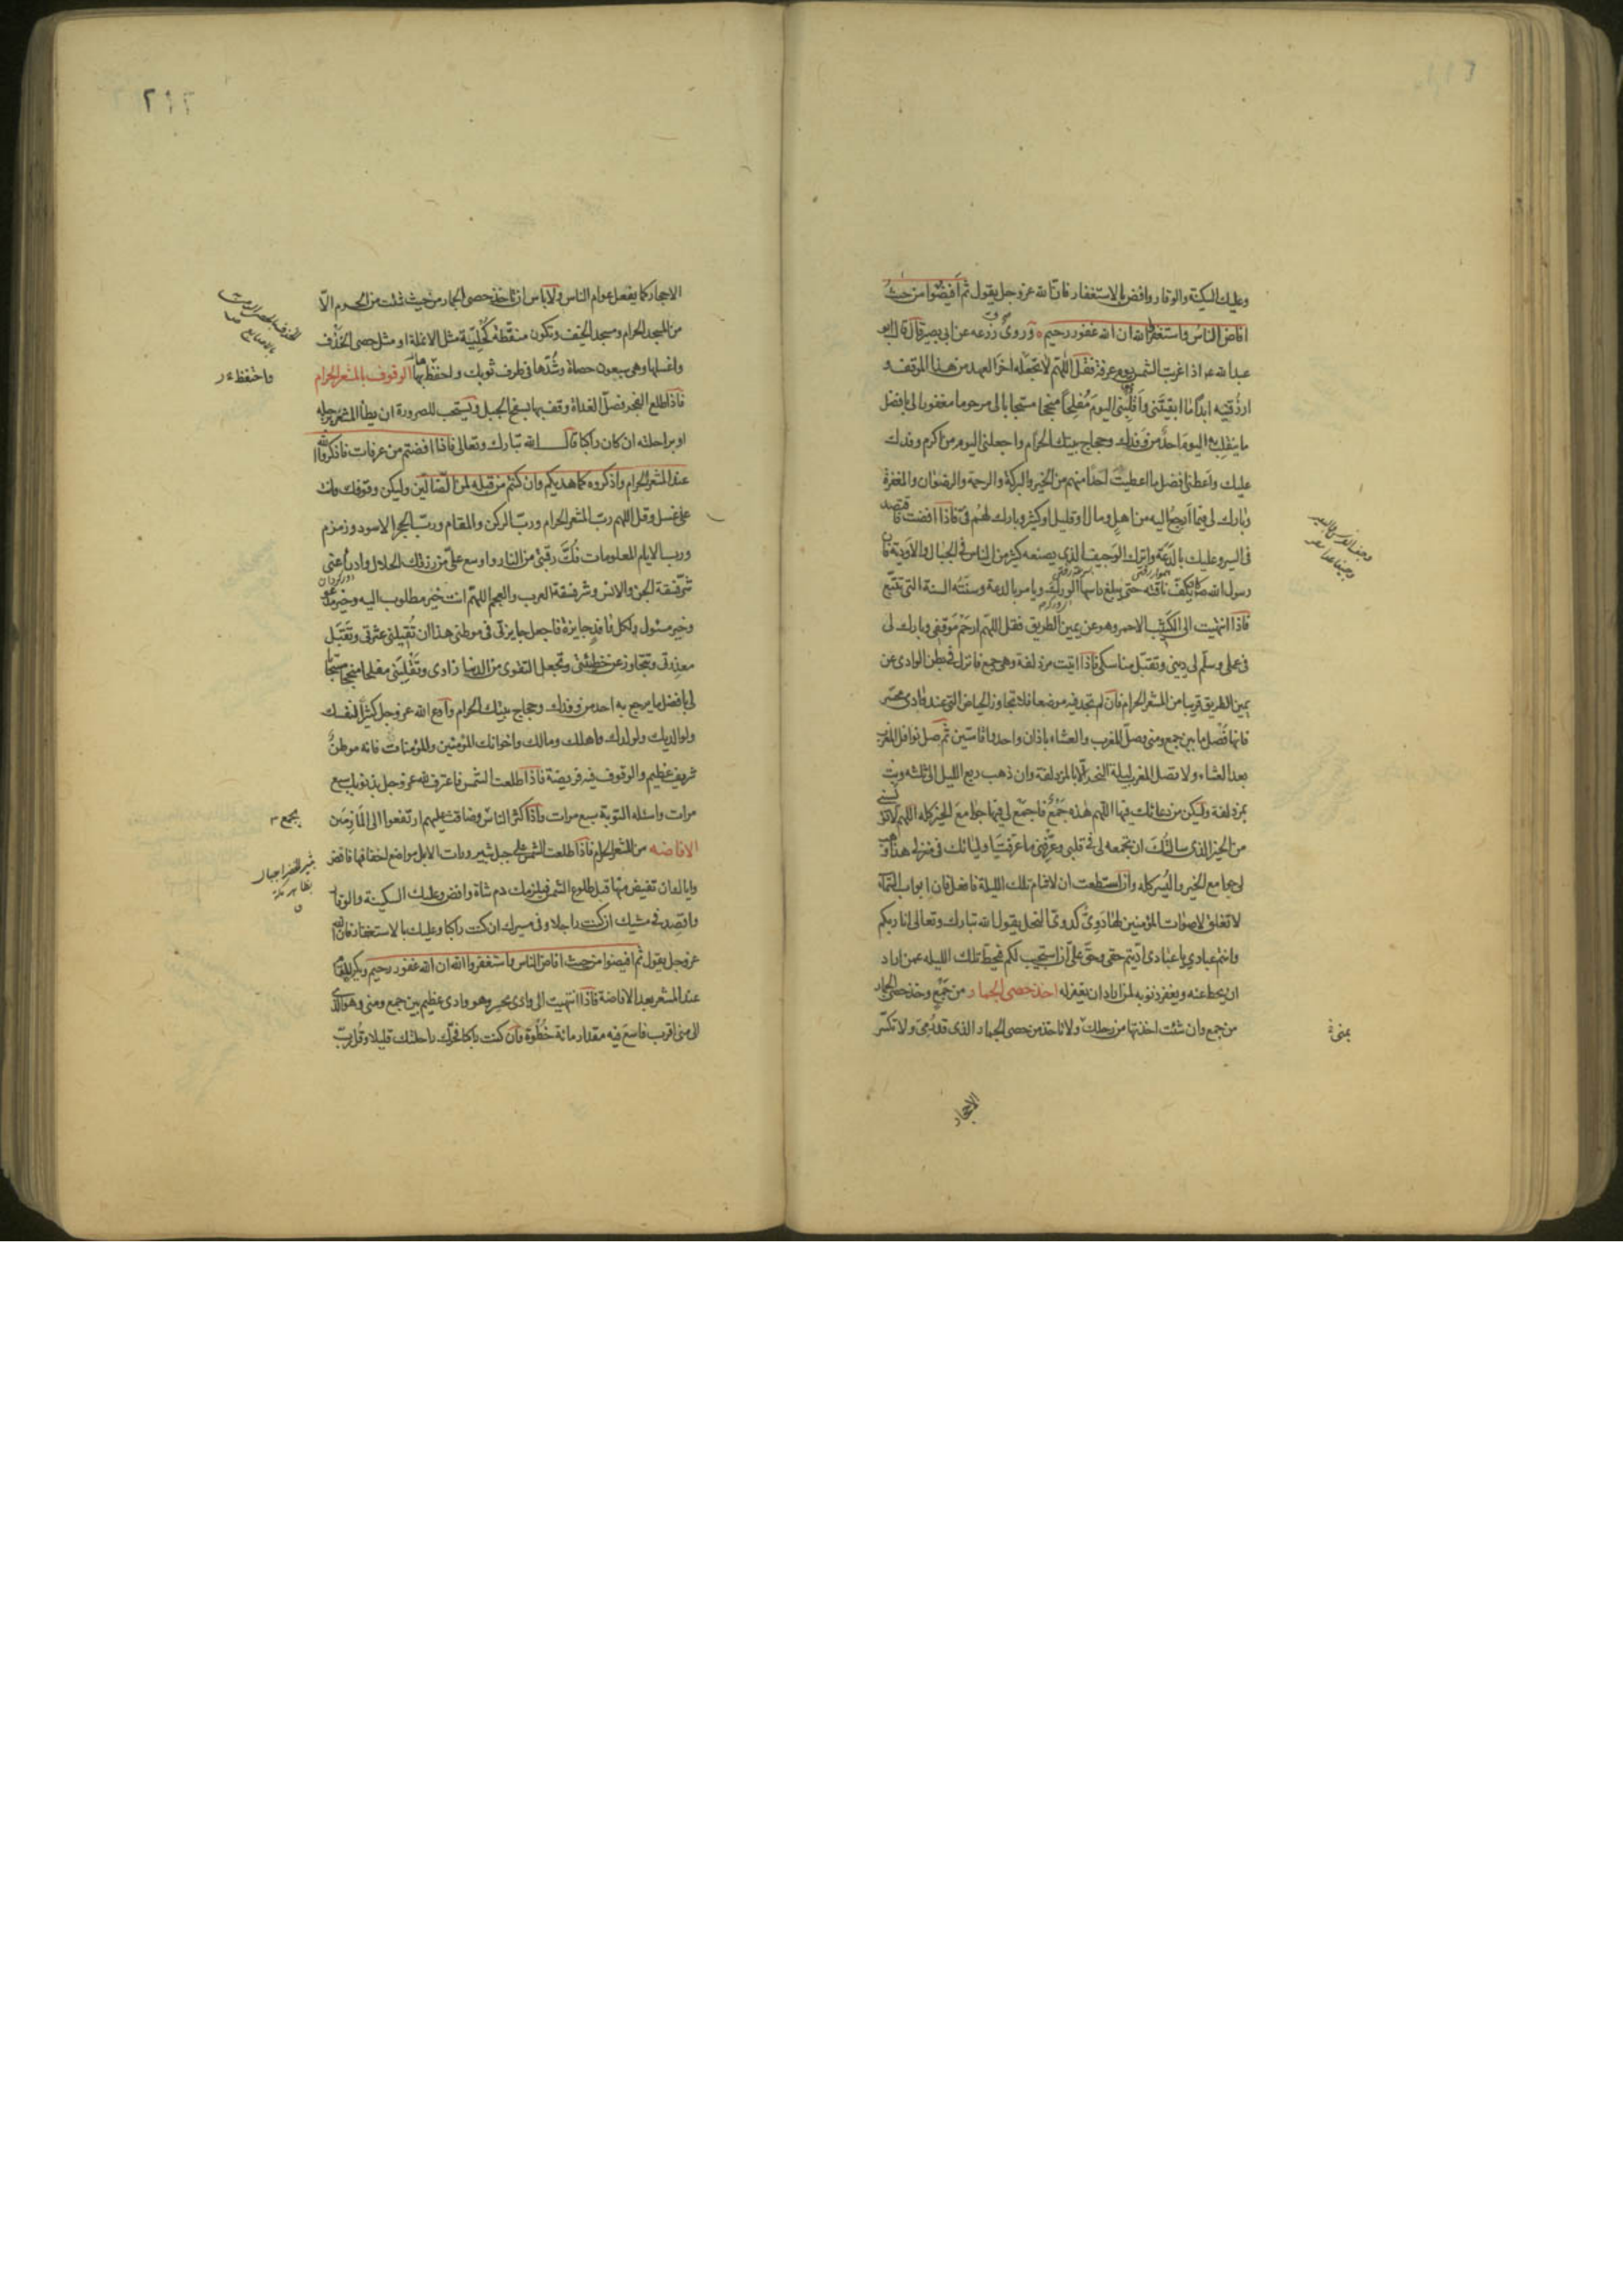 وعليك السكينة والوقار وافض بالاستغفار فان الله عز وجل يقول ثم افيضوا من حيث
افاض الناس واستغفروا الله ان الله غفور رحيم وروى زرعه عن ابي بصير قال قال ابو
عبد الله ع اذا غربت الشمس يوم عرفة فقل اللهم لا تجعله اخر العهد من هذا الموقف و
ارزقنيه ابدا ما ابقيتني واقلبني اليوم مفلحا منجحا مستجابا لي مرحوما مغفورا لي بافضل
ما ينقلب به اليوم احد من وفدك وحجاج بيتك الحرام واجعلني اليوم من اكرم وفدك
عليك واعطني افضل ما اعطيت احدا منهم من الخير والبركة والرحمة والرضوان والمغفرة
وبارك لي فيما ارجع اليه من اهل ومال او قليل او كثير وبارك لهم في فاذا افضت فاقتصد
في السير وعليك بالدعة واترك الوجيف الذي يصنعه كثير من الناس في الجبال والاودية فان
رسول الله ص كان يكف ناقته حتى يبلغ راسها الورك ويامر بالدعة وسنته السنة التي تتبع
فاذا انتهيت الى الكثيب الاحمر وهو عن يمين الطريق فقل اللهم ارحم موقفي وبارك لي
في عملي وسلم لي ديني وتقبل مناسكي فاذا اتيت مزدلفة وهي جمع فانزل في بطن الوادي عن
يمين الطريق قريبا من المشعر الحرام فان لم تجد فيه موضعا فلا تجاوز الحياض التي عند وادي محسر
فانها فصل ما بين جمع ومنى وصل المغرب والعشاء باذان واحد واقامتين ثم صل نوافل المغرب
بعد العشاء ولا تصل المغرب ليلة النحر الا بالمزدلفة وان ذهب ربع الليل الى ثلثه وبت
بمزدلفة وليكن من دعائك فيها اللهم هذه جمع فاجمع لي فيها جوامع الخير كله اللهم لا تؤيسني
من الخير الذي سالتك ان تجمعه لي في قلبي وعرفني ما عرفت اوليائك في منزلي هذا وهب
لي جوامع الخير واليسر كله وان استطعت ان لا تنام تلك الليلة فافعل فان ابواب السماء
لا تغلق لاصوات المؤمنين لها دوي كدوي النحل يقول الله تبارك وتعالى انا ربكم
وانتم عبادي يا عبادي اديتم حقي وحق علي ان استجيب لكم فيحط تلك الليله عمن اراد
ان يحط عنه ويغفر ذنوبه لمن اراد ان يغفر له اخذ حصى الجمار من جمع وخذ حصى الجمار
من جمع وان شئت اخذتها من رحلك ولا تاخذ من حصى الجمار الذي قد رمي ولا تكسر
بمنى
الاحجار
الاحجار كما يفعل عوام الناس ولا باس ان تاخذ حصى الجمار من حيث شئت من الحرم الا
من المسجد الحرام ومسجد الخيف وتكون منقطة كحلية مثل الانملة او مثل حصى الخذف
واغسلها وهي سبعون حصاة وشدها في طرف ثوبك واحفظ بها الوقوف بالمشعر الحرام
واحتفظ
فاذا طلع الفجر فصل الغداة وقف بها بسفح الجبل ويستحب للصرورة ان يطأ المشعر برجله
او براحلته ان كان راكبا قال الله تبارك وتعالى فاذا افضتم من عرفات فاذكروا الله
عند المشعر الحرام واذكروه كما هديكم وان كنتم من قبله لمن الضالين وليكن وقوفك وانت
على غسل وقل اللهم رب المشعر الحرام ورب الركن والمقام ورب الحجر الاسود وزمزم
ورب الايام المعلومات فك رقبتي من النار واوسع علي من رزقك الحلال وادرأ عني
شر فسقة الجن والانس وشر فسقة العرب والعجم اللهم انت خير مطلوب اليه وخير مدعو
وخير مسئول ولكل وافد جايزة فاجعل جايزتي في موطني هذا ان تقيلني عثرتي وتقبل
معذرتي وتتجاوز عن خطيئتي وتجعل التقوى من الدنيا زادي وتقلبني مفلحا منجحا مستجابا
لي بافضل ما يرجع به احد من وفدك وحجاج بيتك الحرام وادع الله عز وجل كثيرا لنفسك
ولوالديك ولولدك واهلك ومالك واخوانك المؤمنين والمؤمنات فانه موطن
شريف عظيم والوقوف فيه فريضة فاذا طلعت الشمس فاعترف لله عز وجل بذنوبك سبع
مرات واسئله التوبة سبع مرات واذا كثر الناس وضاقت عليهم ارتفعوا الى المازمين
بجمع
الافاضه من المشعر الحرام فاذا طلعت الشمس على جبل ثبير ورات الابل مواضع اخفافها فافض
واياك ان تفيض منها قبل طلوع الشمس فيلزمك دم شاة وافض وعليك السكينة والوقار
واقصد في مشيك ان كنت راجلا وفي مسيرك ان كنت راكبا وعليك بالاستغفار فان الله
عز وجل يقول ثم افيضوا من حيث افاض الناس واستغفروا الله ان الله غفور رحيم ويكره المقام
عند المشعر بعد الافاضة فاذا انتهيت الى وادي محسر وهو وادي عظيم بين جمع ومنى وهو الى
الى منى اقرب فاسع فيه مقدار مائة خطوة وان كنت راكبا فحرك راحلتك قليلا وقل رب